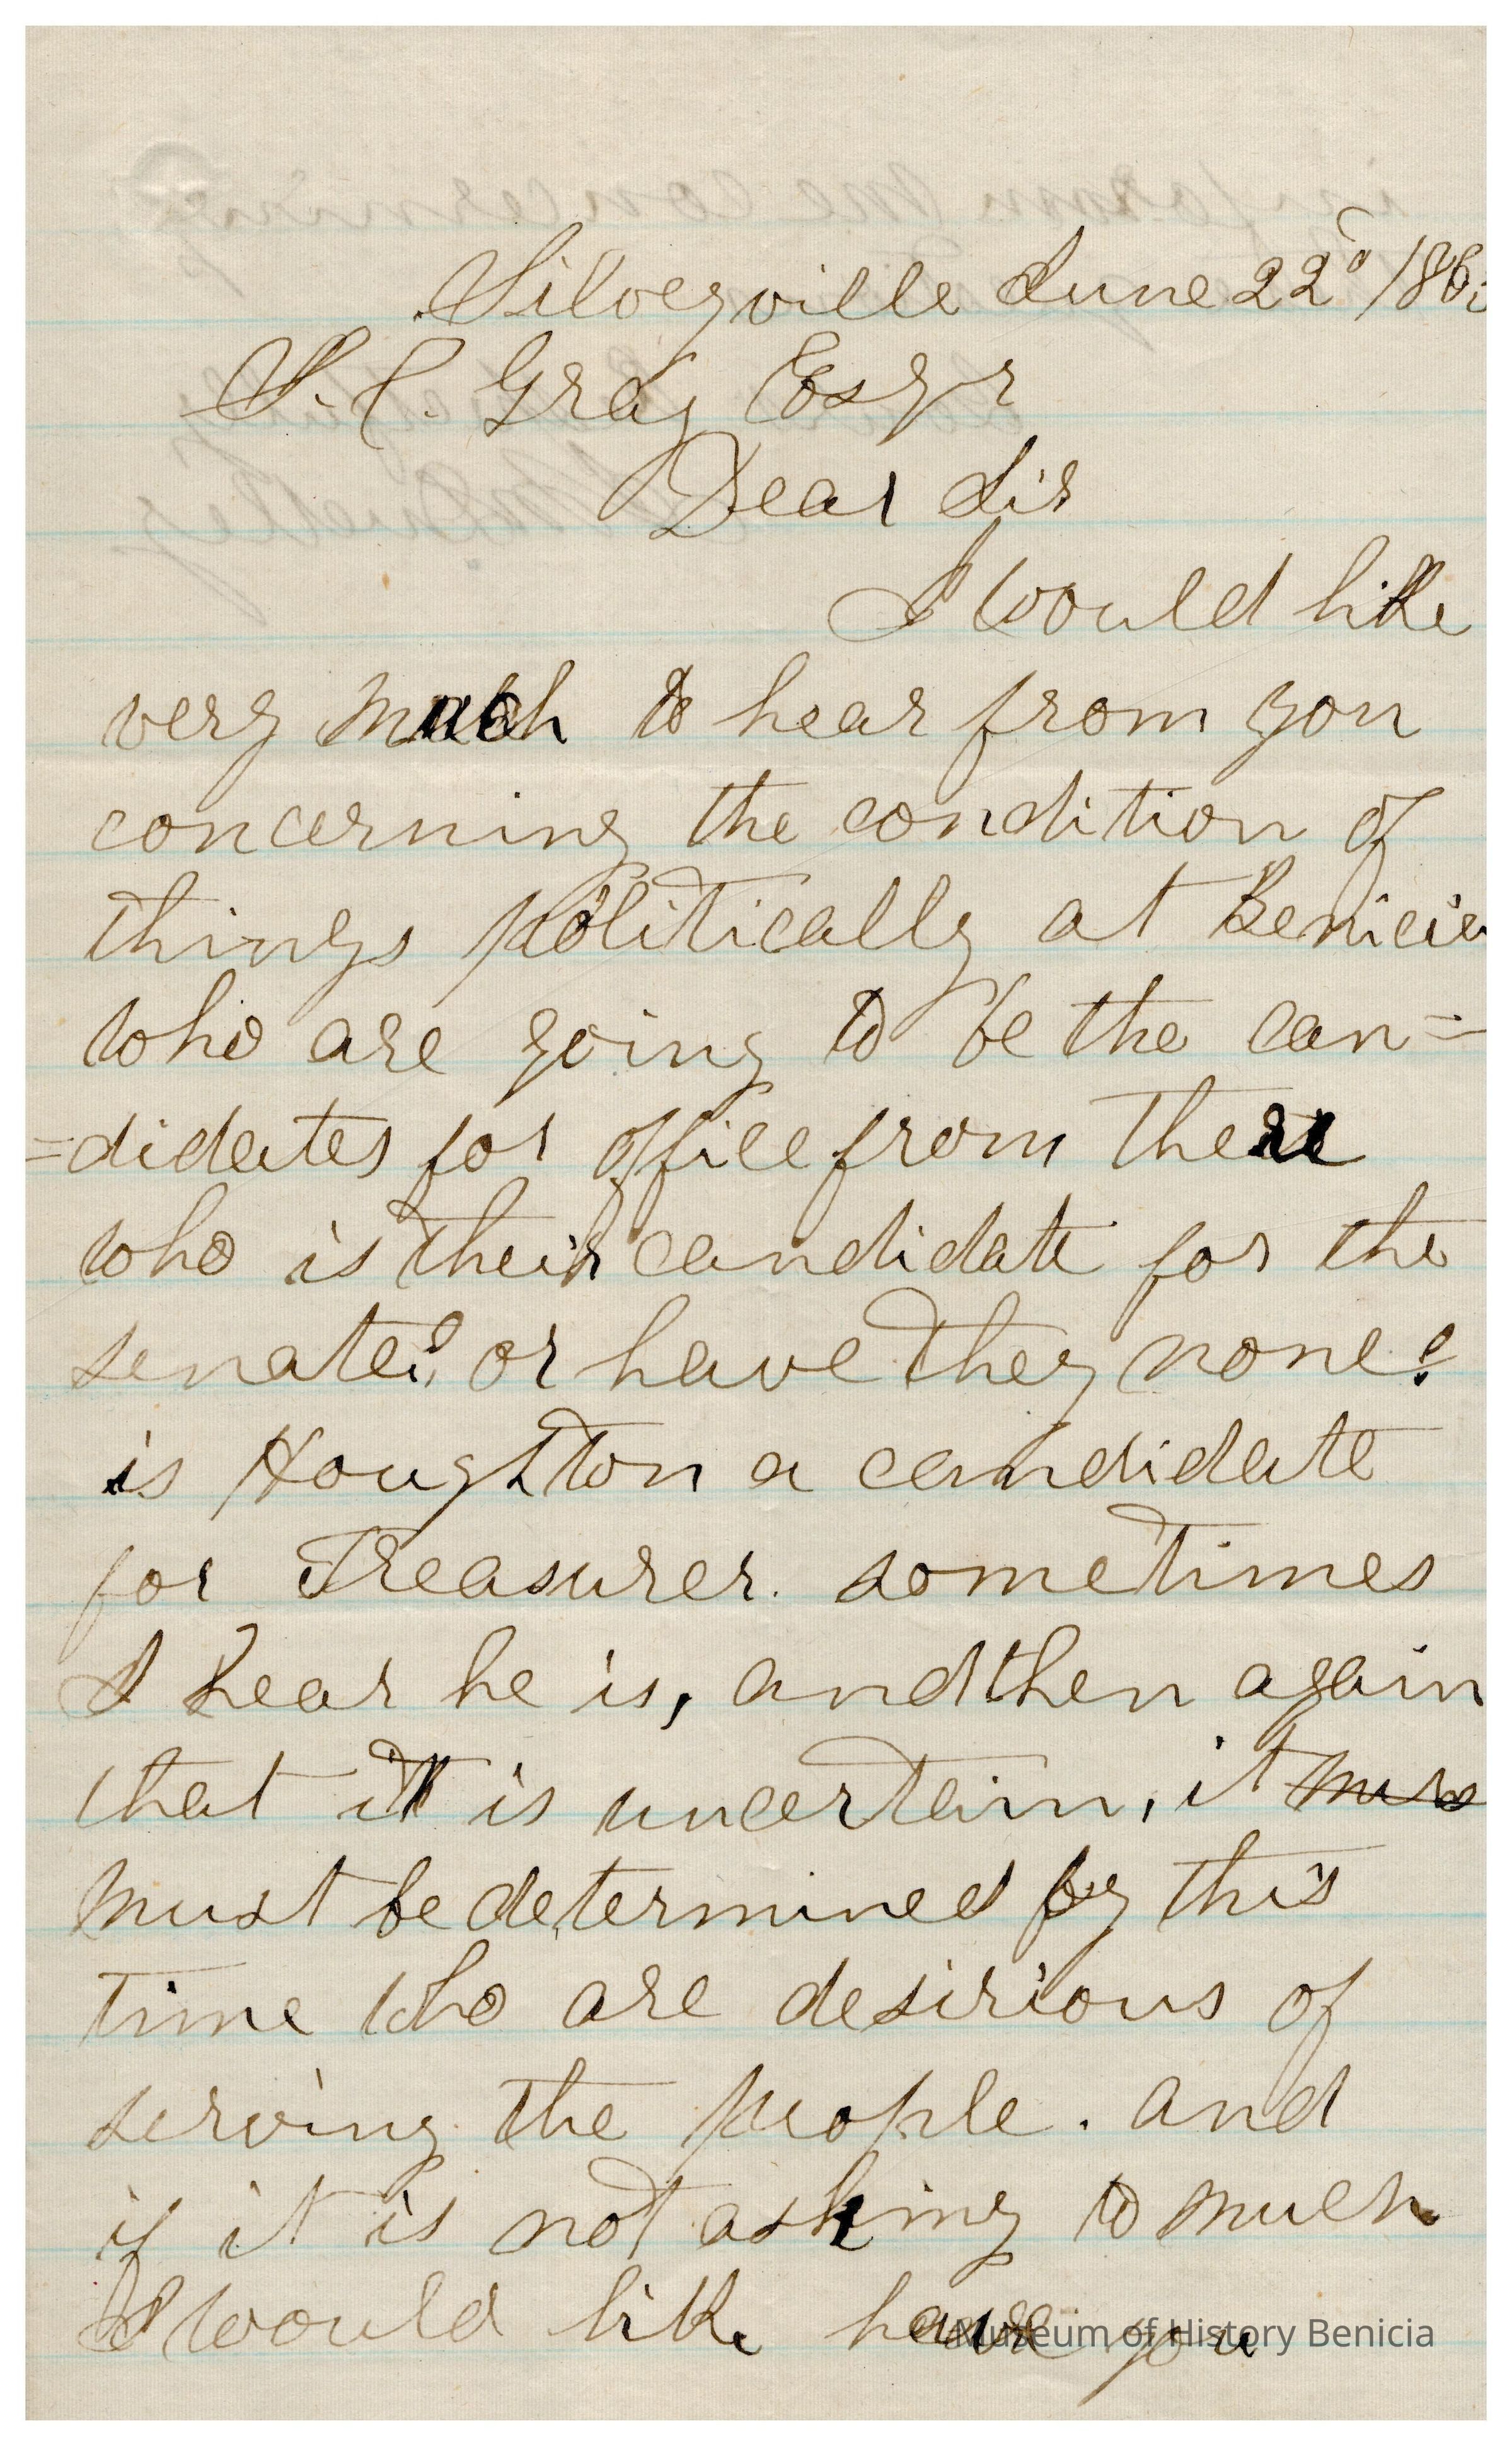 Silveyville June 22d 186
S. C. Gray Esqr
Dear Sir
I would like
very much to hear from you
concerning the condition of
things politically at Benicia
who are going to be the can=
=didates for office from there
who is their candidate for the
senate? or have they none?
is Houghton a candidate
for Treasurer. sometimes
I hear he is, and then again
that it is uncertain, it mus
must be determined by this
time who are desirious of
serving the people. and
if it is not asking to much
I would like have you
Museum of History Benicia